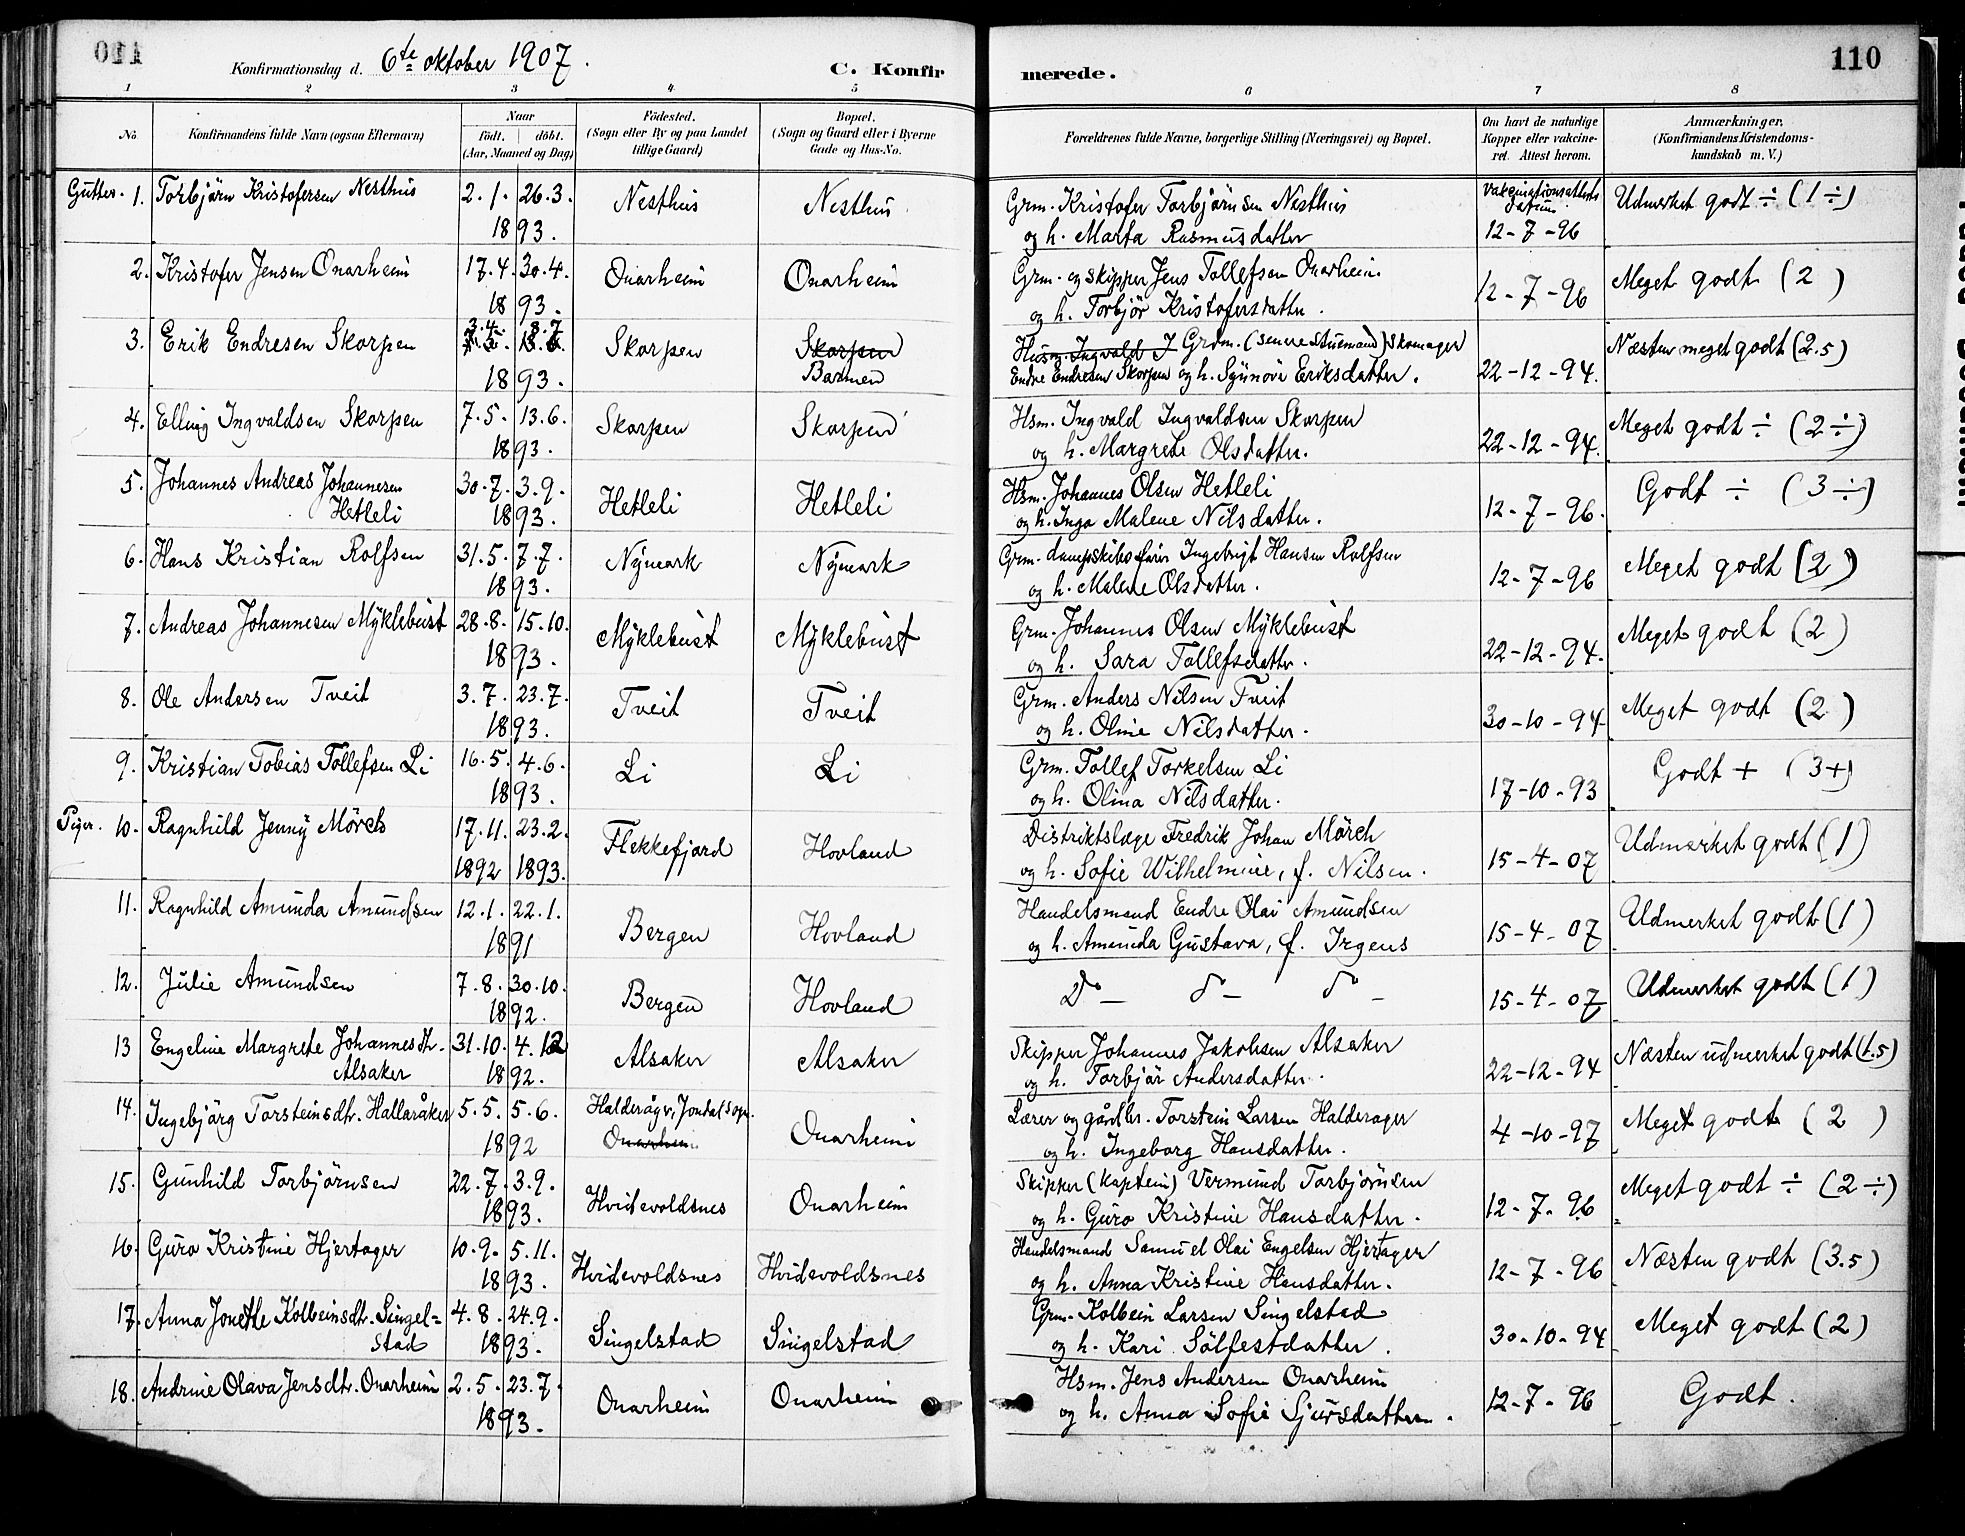 110
Konfirmationsdag d. 6te oktober 1907.
C. Konfir
merede.
110
1 2 3 4 5 6 7 8
No. Konfirmandens fulde Navn (ogsaa Efternavn) Naar født. døbt. (Aar, Maaned og Dag) Fødested. (Sogn eller By og paa Landet tillige Gaard) Bopæl. (Sogn og Gaard eller i Byerne Gade og Hus-No. Forældrenes fulde Navne, borgerlige Stilling (Næringsvei) og Bopæl. Om havt de naturlige Kopper eller vakcineret. Attest herom. Anmærkninger. (Konfirmandens Kristendomskundskab m. V.)
Gutter. 1. Torbjørn Kristofersen Nesthus 2.1. 26.3. Nesthus Nesthus Grm. Kristofer Torbjörnsen Nesthus Vakcinationsattests datum Udmerket godt ÷ (1÷)
1893. og h. Marta Rasmusdatter 12-7-96
2. Kristofer Jensen Onarheim 17.4. 30.4. Onarheim Onarheim Grm. og skipper Jens Tollefsen Onarheim. Meget godt (2)
1893. og h. Torbjör Kristofersdatter. 12-7-96
3. Erik Endresen Skorpen 3.4. 8.7 Skorpen Skorpen Husm. Ingvald J Grdm. (senere stuemand) skomager Næsten meget godt (2.5)
1893. Barmen Endre Endresen Skorpen og h. Synnöve Eriksdatter. 22-12-94.
4. Elling Ingvaldsen Skorpen 7.5. 13.6. Skorpen Skorpen Hsm. Ingvald Ingvaldsen Skorpen Meget godt ÷ (2÷)
1893. og h. Margrete Olsdatter. 22-12-94.
5. Johannes Andreas Johannesen 30.7. 3.9. Hetleli Hetleli Hsm. Johannes Olsen Hetleli Godt ÷ (3÷)
Hetleli 1893. og h. Inga Malene Nilsdatter. 12-7-96.
6. Hans Kristian Rolfsen 31.5. 7.7. Nymark Nymark Grm. dampskibsfører Ingebrigt Hansen Rolfsen Meget godt (2)
1893. og h. Malene Olsdatter. 12-7-96
7. Andreas Johannesen Myklebust 28.8. 15.10. Myklebust Myklebust Grm. Johannes Olsen Myklebust Meget godt (2)
1893. og h. Sara Tollefsdatter. 22-12-94.
8. Ole Andersen Tveit 3.7. 23.7. Tveit Tveit Grm. Anders Nilsen Tveit Meget godt (2)
1893. og h. Oline Nilsdatter. 30-10-94
9. Kristian Tobias Tollefsen Li 16.5. 4.6. Li Li Grm. Tollef Torkelsen Li Godt + (3+)
1893. og h. Olina Nilsdatter. 17-10-93
Piger. 10. Ragnhild Jenny Mörch 17.11. 23.2. Flekkefjord Hovland Distriktslæge Fredrik Johan Mörch Udmerket godt (1)
1892 1893. og h. Sofie Wilhelmine, f. Nilsen. 15-4-07
11. Ragnhild Amunda Amundsen 12.1. 22.1. Bergen Hovland Handelsmand Endre Olai Amundsen Udmerket godt (1)
1891 og h. Amunda Gustava, f. Irgens 15-4-07
12. Julie Amundsen 7.8. 30.10. Bergen Hovland Do - do - do - Udmerket godt (1)
1892. 15-4-07
13 Engeline Margrete Johannesdtr. 31.10. 4.12 Alsaker Alsaker Skipper Johannes Jakobsen Alsaker Næsten udmerket godt (1.5)
Alsaker 1892. og h. Torbjør Andersdatter. 22-12-94
14. Ingebjörg Torsteinsdtr. Hallaråker 5.5. 5.6. Halderåg v. Jondal sogn. Onarheim Lærer og gårdbr. Torstein Larsen Halderager Meget godt (2)
1892 Onarheim og h. Ingeborg Hansdatter. 4-10-97
15. Gunhild Torbjörnsen 22.7. 3.9. Hvidevoldsnes Onarheim Skipper (kaptein) Vermund Torbjörnsen Meget godt ÷ (2÷)
1893. og h. Guro Kristine Hansdatter. 12-7-96
16. Guro Kristine Hjertager 10.9. 5.11. Hvidevoldsnes Hvidevoldsnes Handelsmand Samuel Olai Engelsen Hjertager Næsten godt (3.5)
1893. og h. Anna Kristine Hansdatter. 12-7-96
17. Anna Jonette Kolbeinsdtr. Singel= 4.8. 24.9. Singelstad Singelstad Grm. Kolbein Larsen Singelstad Meget godt (2)
stad 1893. og h. Kari Sölfestdatter. 30-10-94
18. Andrine Olava Jensdtr. Onarheim 2.5. 23.7. Onarheim Onarheim Hsm. Jens Andersen Onarheim Godt.
1893. og h. Anna Sofie Sjursdatter. 12-7-96